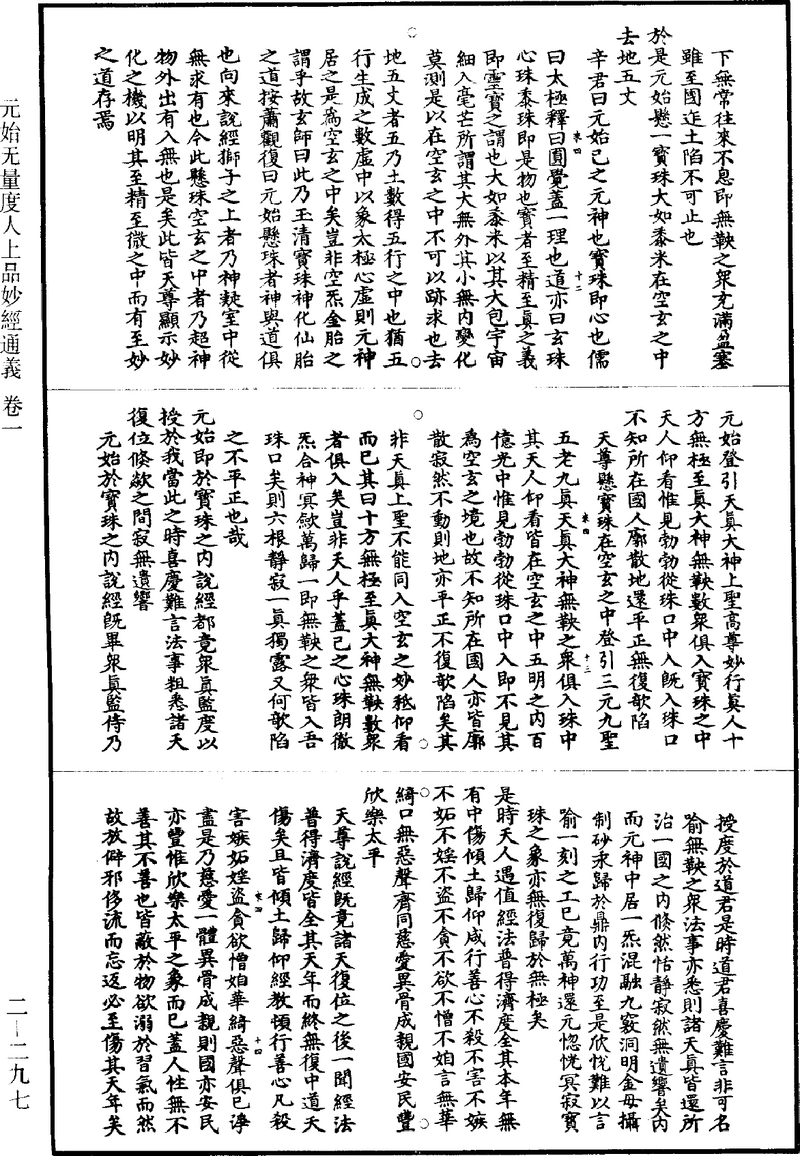 元始无量度人上品妙經通義 卷一
二—二九七
下無常往來不息即無鞅之衆充滿盈塞
雖至國迮土陷不可止也
於是元始懸一寶珠大如黍米在空玄之中
去地五丈
辛君曰元始己之元神也寶珠即心也儒
曰太極釋曰圓覺蓋一理也道亦曰玄珠
心珠黍珠即是物也寶者至精至真之義
即靈寶之謂也大如黍米以其大包宇宙
細入毫芒所謂其大無外其小無內變化
莫測是以在空玄之中不可以跡求也去
地五丈者五乃土數得五行之中也猶五
行生成之數虛中以象太極心虛則元神
居之是爲空玄之中矣豈非空炁金胎之
謂乎故玄師曰此乃玉清寶珠神化仙胎
之道按蕭觀復曰元始懸珠者神與道俱
也向來說經獅子之上者乃神凝室中從
無求有也今此懸珠空玄之中者乃超神
物外出有入無也是矣此皆天尊顯示妙
化之機以明其至精至微之中而有至妙
之道存焉
元始登引天真大神上聖高尊妙行真人十
方無極至真大神無鞅數衆俱入寶珠之中
天人仰看惟見勃勃從珠口中入既入珠口
不知所在國人廓散地還平正無復欹陷
天尊懸寶珠在空玄之中登引三元九聖
五老九真天真大神無鞅之衆俱入珠中
其天人仰看皆在空玄之中五明之內百
億光中惟見勃勃從珠口中入即不見其
爲空玄之境也故不知所在國人亦皆廓
散寂然不動則地亦平正不復欹陷矣其
非天真上聖不能同入空玄之妙秪仰看
而已其曰十方無極至真大神無鞅數衆
者俱入矣豈非天人乎蓋己之心珠朗徹
炁合神冥歛萬歸一即無鞅之衆皆入吾
珠口矣則六根靜寂一真獨露又何欹陷
之不平正也哉
元始即於寶珠之內說經都竟衆真監度以
授於我當此之時喜慶難言法事粗悉諸天
復位倏歘之間寂無遺響
元始於寶珠之內說經既畢衆真監侍乃
授度於道君是時道君喜慶難言非可名
喻無鞅之衆法事亦悉則諸天真皆還所
治一國之內倏然恬靜寂然無遺響矣內
而元神中居一炁混融九竅洞明金母攝
制砂汞歸於鼎內行功至是欣恱難以言
喻一刻之工已竟萬神還元惚恍冥寂寶
珠之象亦無復歸於無極矣
是時天人遇值經法普得濟度全其本年無
有中傷傾土歸仰咸行善心不殺不害不嫉
不妬不婬不盜不貪不欲不憎不妲言無華
綺口無惡聲齊同慈愛異骨成親國安民豐
欣樂太平
天尊說經既竟諸天復位之後一聞經法
普得濟度皆全其天年而終無復中道夭
傷矣且皆傾土歸仰經教頓行善心凡殺
害嫉妬婬盜貪欲憎妲華綺惡聲俱已淨
盡是乃慈愛一體異骨成親則國亦安民
亦豐惟欣樂太平之象而已蓋人性無不
善其不善也皆蔽於物欲溺於習氣而然
故放僻邪侈流而忘返必至傷其天年矣